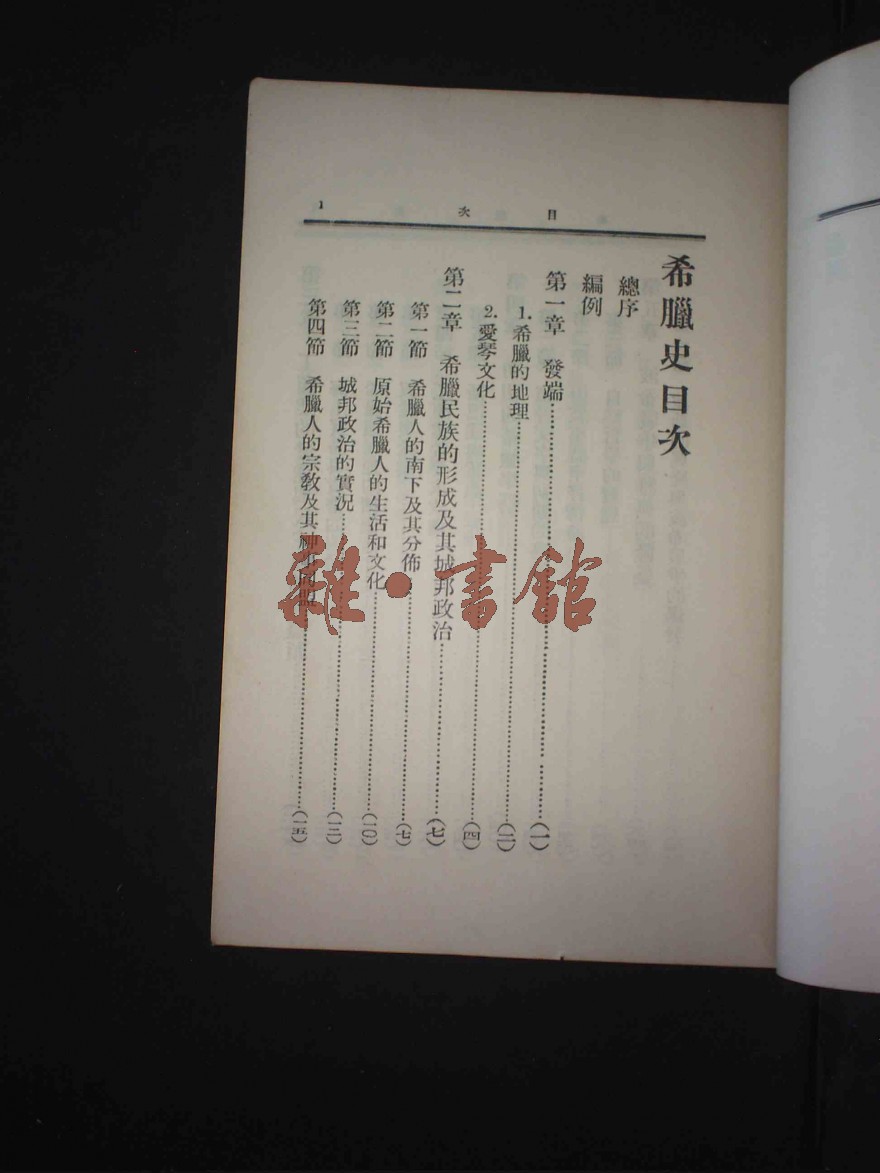 目次
1
希臘史目次
總序
編例
第一章 發端……(一)
1.希臘的地理……(二)
2.愛琴文化……(四)
第二章 希臘民族的形成及其城邦政治……(七)
第一節 希臘人的南下及其分佈……(七)
第二節 原始希臘人的生活和文化……(一〇)
第三節 城邦政治的實況……(一三)
第四節 希臘人的宗教及其……(一五)
雜·書館